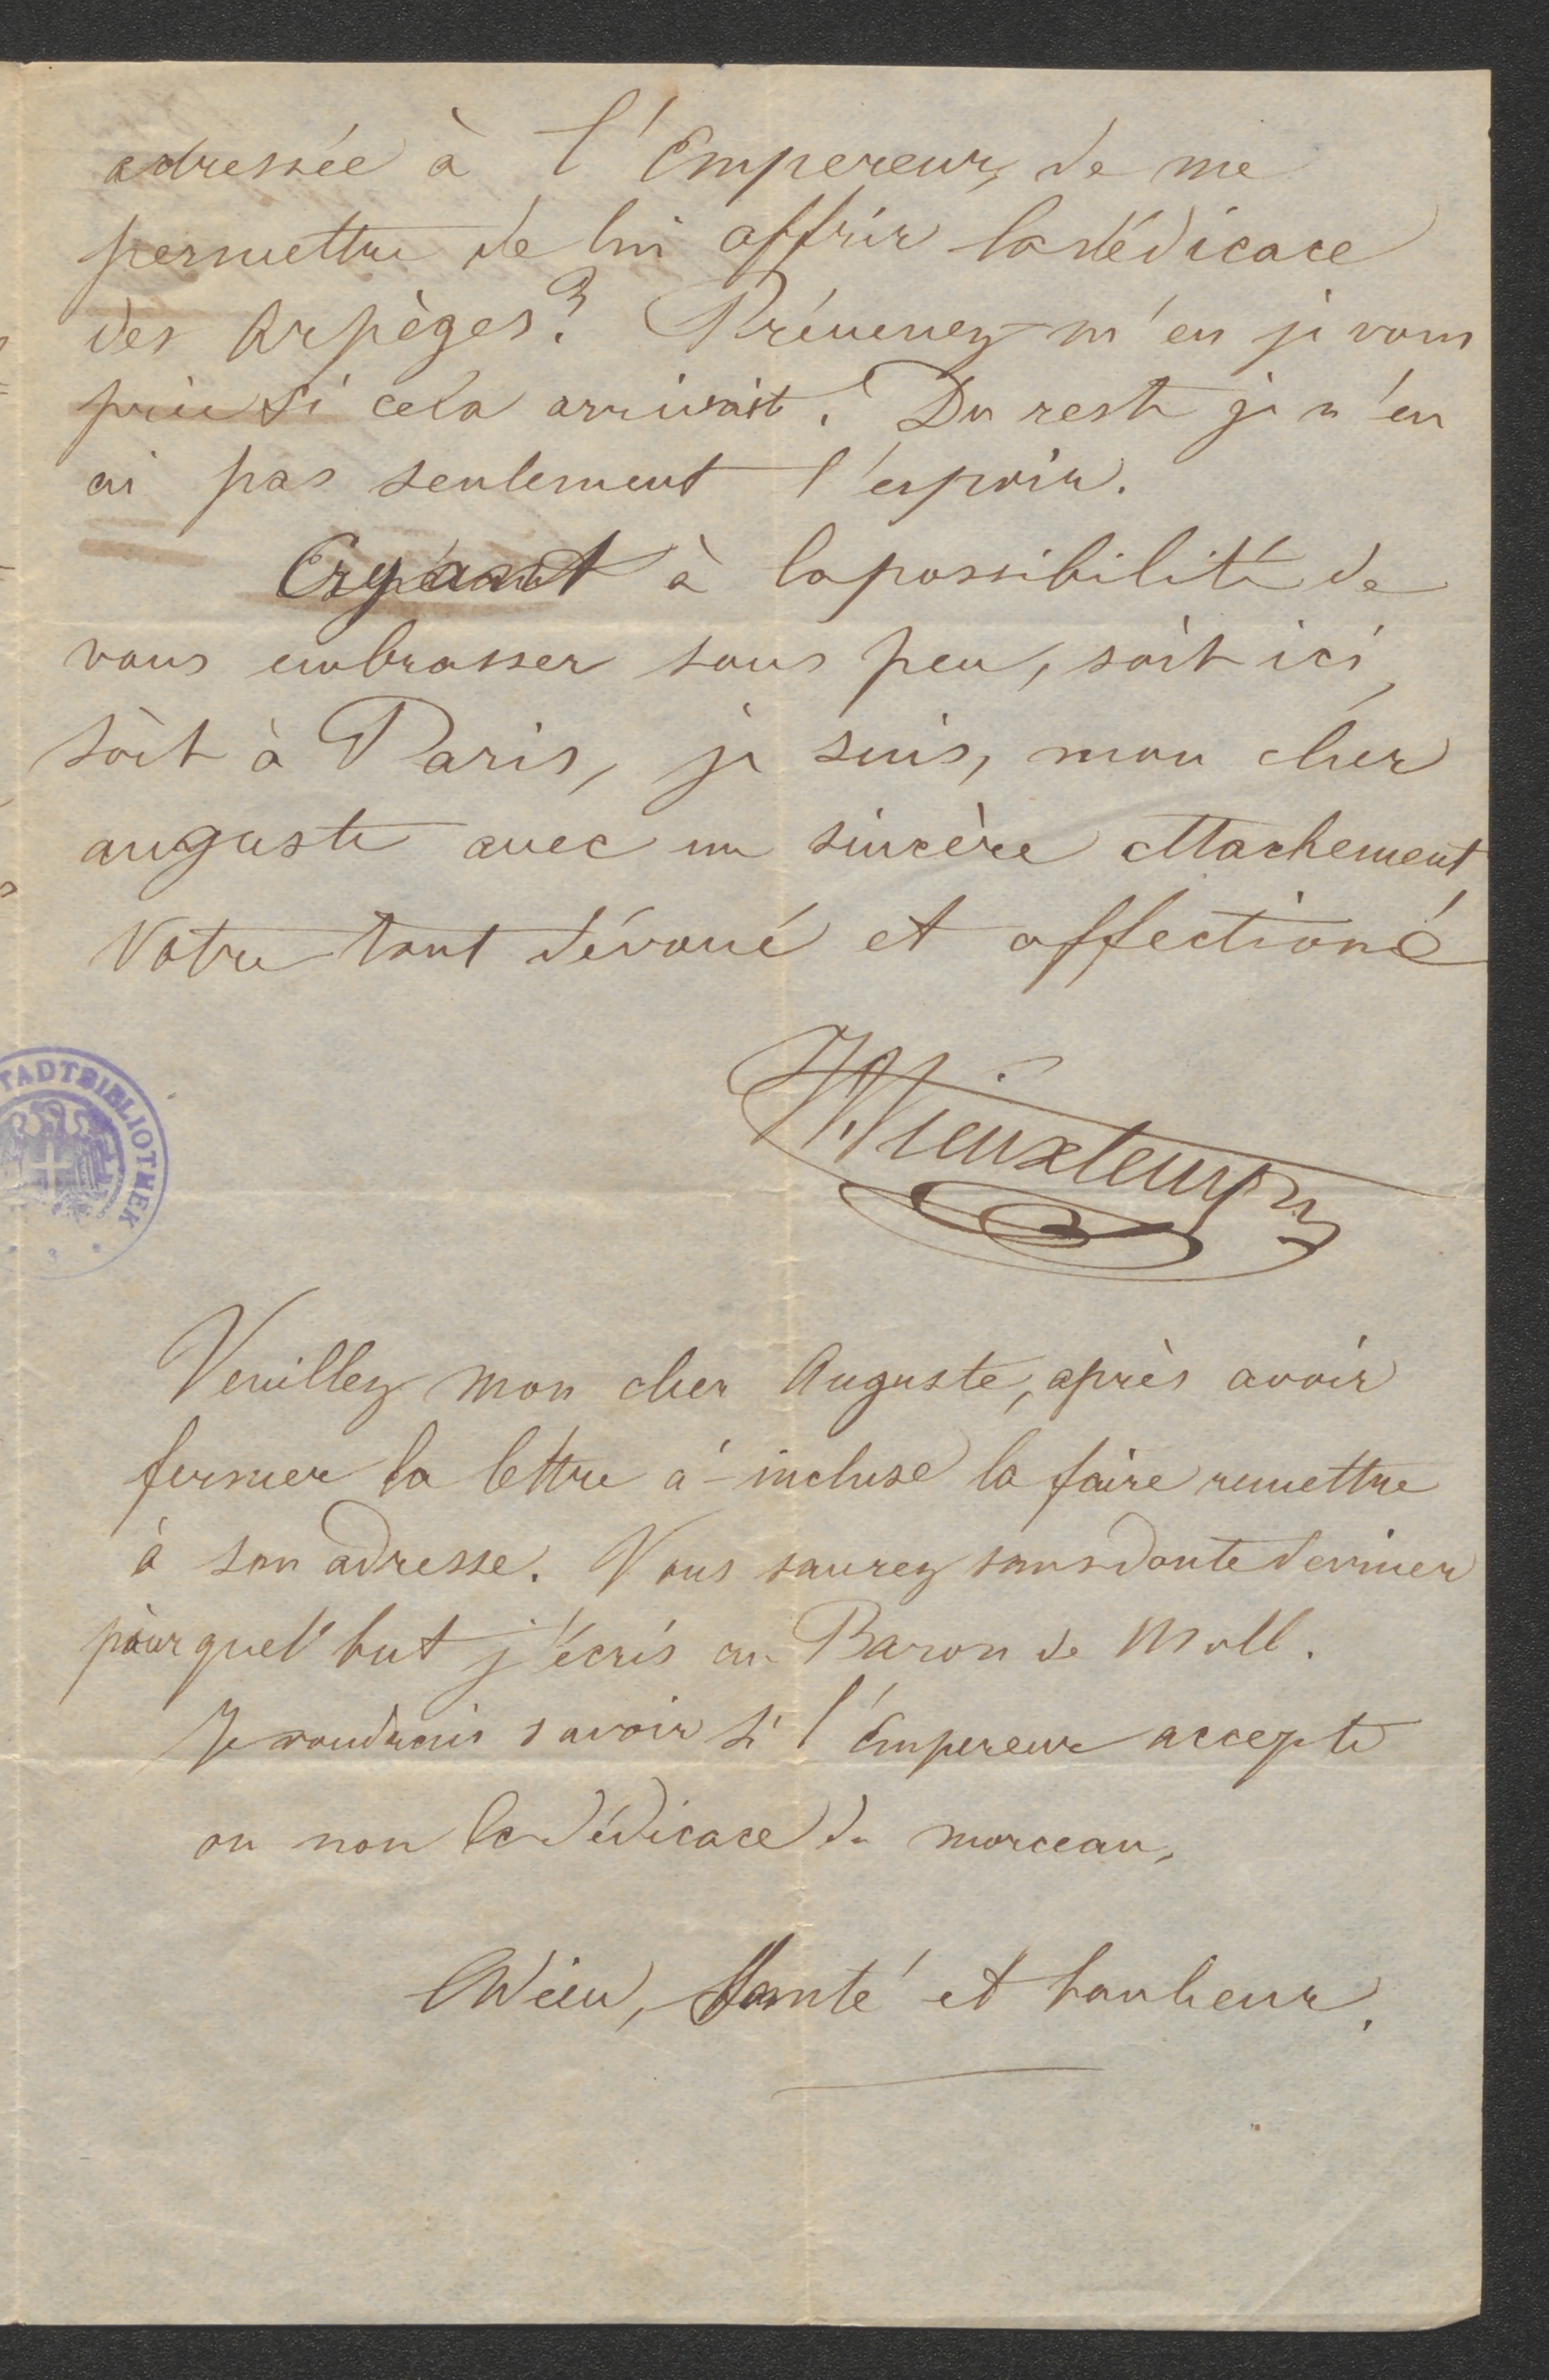 adressée à l'Empereur, de me
permettre de lui offrir la dédicace
des Arpèges? Prévenez-m'en je vous
prie si cela arrivait. Du reste je n'en
ai pas seulement l'espoir.
Croyant à la possibilité de
vous embrasser sous peu, soit ici,
soit à Paris, je suis, mon cher
auguste avec un sincère attachement
Votre tout dévoué et affectioné
HVieuxtemps
STADTBIBLIOTHEK
Veuillez mon cher Auguste, après avoir
fermer la lettre ci-incluse la faire remettre
à son adresse. Vous saurez sans doute deviner
pour quel but j'écris au Baron de Moll.
Je voudrais savoir si l'Empereur accepte
ou non la dédicace du morceau,
Adieu, Santé et bonheur.